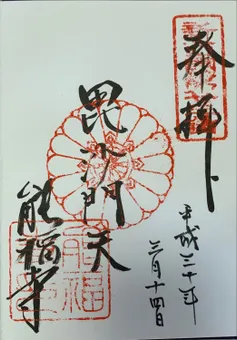 奉拝
平成三十年
三月十四日
毘沙門天
能福寺